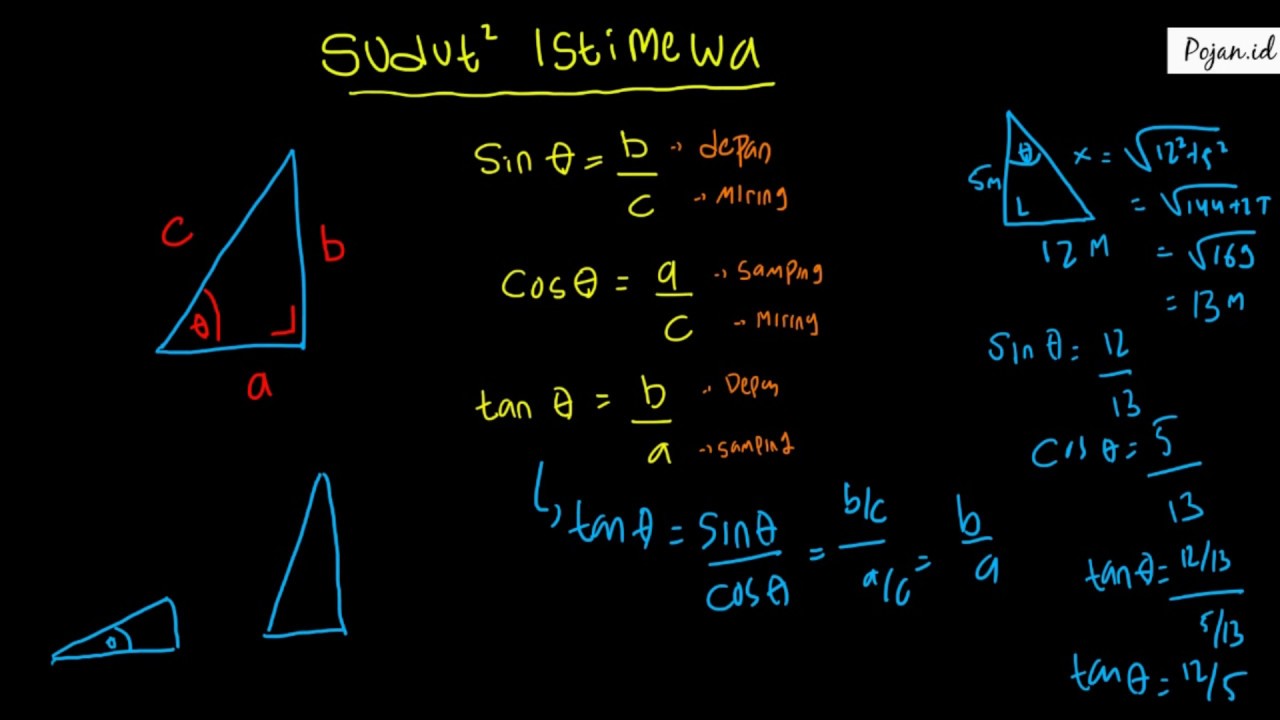 Sudut² Istimewa
Pojan.id
c
b
θ
a
Sin θ = b/c → depan → Miring
Cos θ = a/c → Samping → Miring
tan θ = b/a → Samping
↳ tan θ = Sin θ/cos θ = b/c / a/c = b/a
θ
5m
12 M
x = √12²+5²
= √144+25
= √169
= 13 M
Sin θ = 12/13
Cos θ = 5/13
tan θ = 12/13 / 5/13
tan θ = 12/5
θ